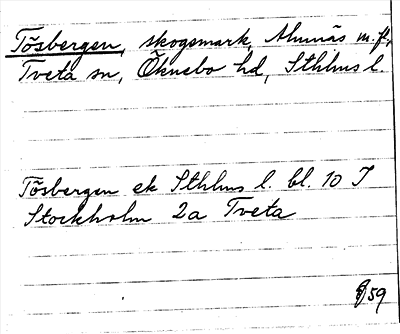 Tösbergen, skogsmark, Almnäs m. fl.,
Tveta sn, Öknebo hd, Sthlms l.
Tösbergen ek Sthlms l. bl. 10 I
Stockholm 2a Tveta
/59